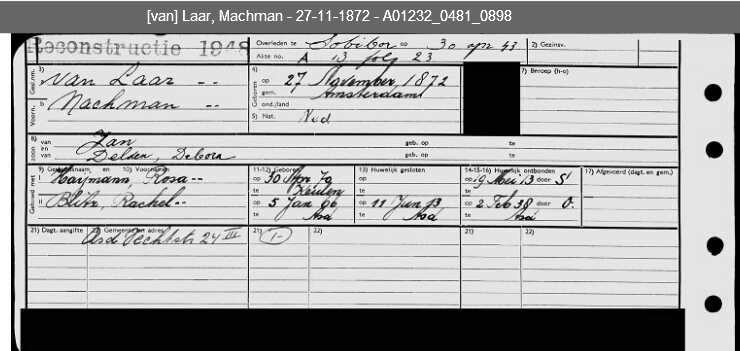 [van] Laar, Machman - 27-11-1872 - A01232_0481_0898
Reconstructie 1948
Overleden te Sobibor 30 apr 43
2) Gezinsv.
Akte no. A 13 folg 23
Gesl.nm. 3) van Laar
4) Geboren op 27 November, 1872
7) Beroep (h-o)
Voorn. b) Nachman
gem. Amsterdam
ond./land
5) Nat. Ned
8) zoon van Jan geb. op te
en van Delden, Debora geb. op te
Gehuwd met 9) Geslachtsnaam, en 10) Voornamen
11-12) Geboren
13) Huwelijk gesloten
14-15-16) Huwelijk ontbonden
17) Afgevoerd (dagt. en gem.)
Haijmann, Rosa
op 30 Apr 79 op op 19 Mei 13 door S
te te te
II Rachel
op 5 Jan 86 op 11 Jun 13 op 2 Feb 38 door O.
te Asd te Asd te Asd
21) Dagt. aangifte 22) Gemeente en adres 21) 22) 21) 22)
Asd Vechtstr 24 III 1-